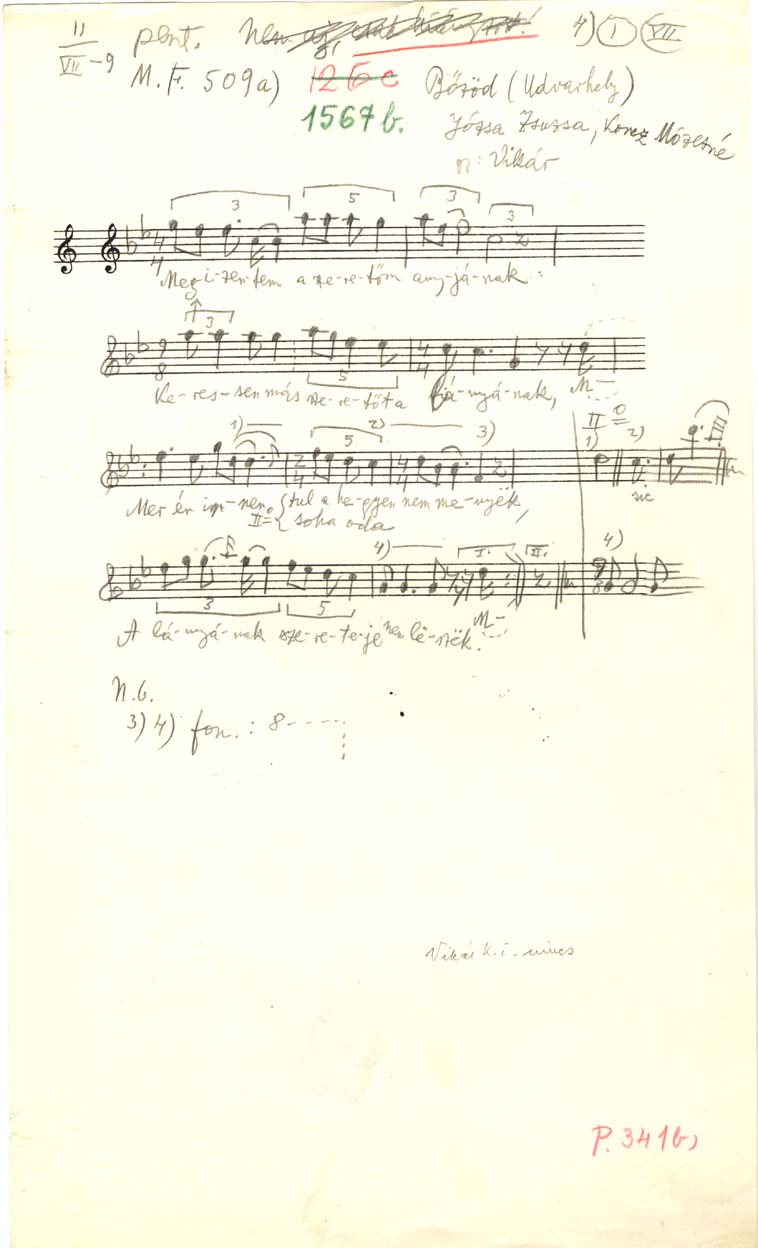 11
VII-9 pent. 4) I VII
M. F. 509a) 126c Bözöd (Udvarhely)
1567b. Józsa Zsuzsa, Koncz Mózesné
Vikár
3 5 3 3
Megizentem a sze-re-tőm any-já-nak:
3 5
Ke-res-sen más sze-re-tőt a lá-nyá-nak, M-
1) 5 2) 3) II 1) 2) III
Mer én in-nen tul a he-gyen nem me-nyëk,
II= soha oda sic
4) I. II. 4)
3 5
A lá-nyá-nak sze-re-te-jë nem lë-szëk. M-
N.b.
3) 4) fon.: 8
Vikár k.i. nincs
P. 341b)